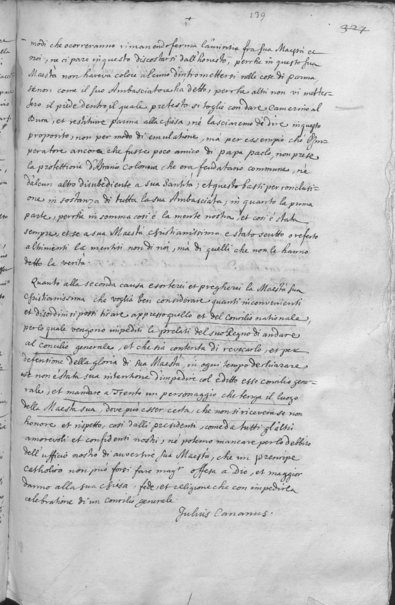 139
327
modi che occorreranno rimanendo ferma l'amicitia fra sua Maestà et
noi, ne ci pare in questo discostarsi dall'honesto, perche in questo sua
Maestà non haveva colore alcuno d'intromettersi nelle cose di parma
se non come il suo Ambasciatore ha detto, perche altri non vi mettes-
sero il piede dentro, il quale pretesto si toglie con dare Camerino al
Duca, et restituire parma alla chiesa, nè lasciaremo di dire in questo
proposito, non per modo di emulatione, ma per essempio che l'Im-
peratore ancora che fusse poco amico di papa paolo, non prese
la protettione d'Ascanio Colonna che era feudatario commune, nè
d'alcun altro disubediente a sua Santità; et questo basti per conclusi-
one in sostanza di tutta la sua Ambasciata; in quanto la prima
parte, perche in somma così è la mente nostra, et così è stata
sempre, et se a sua Maestà christianissima è stato scritto o referto
altrimenti la mentiri non di noi, ma di quelli che non le hanno
detto la verità.
Quanto alla seconda causa essorterei et pregherei la Maestà sua
christianissima che voglia ben considerare quanti inconvenienti
et disordini si possi tirare appresso quello et del Concilio nationale,
per lo quale vengono impediti li prelati del suo Regno di andare
al Concilio generale, et che sia contenta di revocarlo, et per
detentione della gloria di sua Maestà, in ogni tempo dechiarare
se non è stata sua intentione d'impedire col editto esso concilio gene-
rale, et mandare a Trento un personaggio che tenga il luogo
della Maestà sua, dove può esser certa, che non si riceverà se non
honore et rispetto, così dalli presidenti, come da tutti gl'altri
amorevoli et confidenti nostri, ne potemo mancare per lo debito
dell'ufficio nostro di avvertire sua Maestà, che un prencipe
catholico non può forsi fare magr offesa a Dio, et maggior
danno alla sua chiesa, fede, et religione che con impedir la
celebratione di un Concilio generale
Julius Cananus.